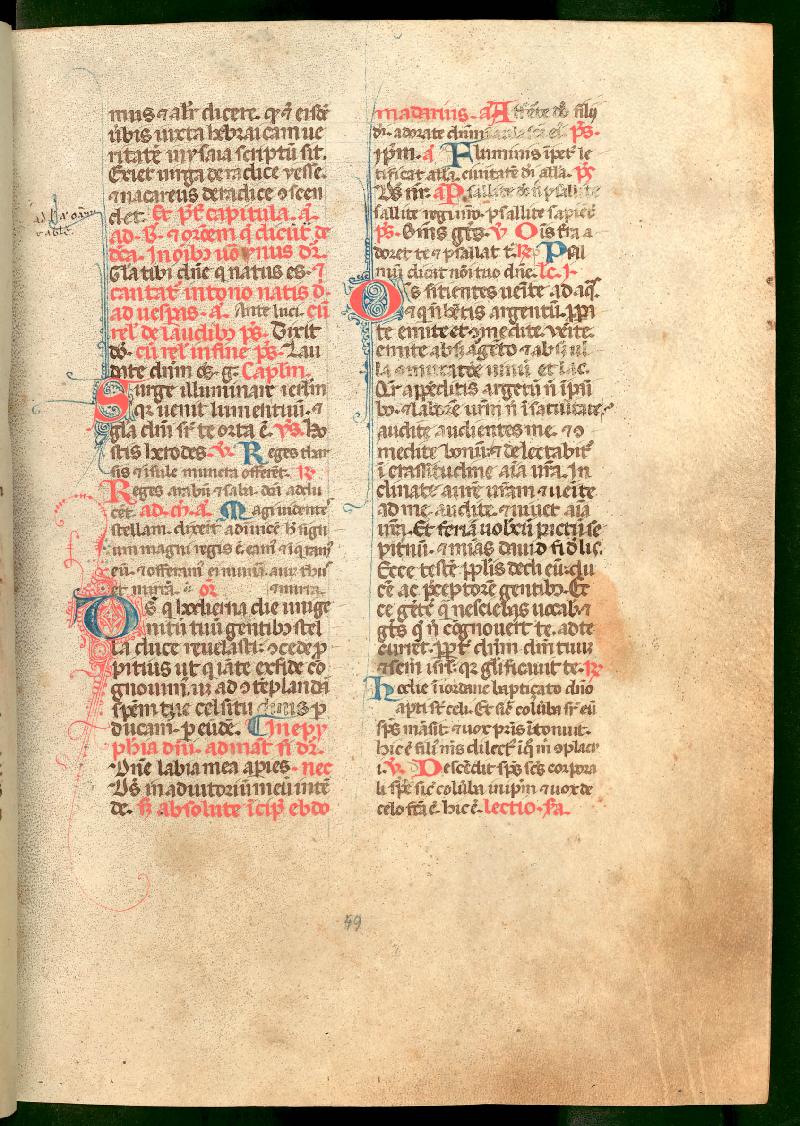 mus ⁊ al'r dicere. qꝛ ⁊ eisdē
ūbis iuxta hebraicam ue
ritatē in ysaia scriptū sit.
Exiet uirga de radice yesse.
⁊ nazareus de radice ꝯscen
det. Et pꝰ capitula. a.
ad. b. ⁊ orōem q̄ dicūt̄ de
dn̄a. In oĩbꝫ
Gl̄a tibi dn̄e q natus es. ⁊
cantat̄ in tono natis d.
ad uesp̄as. a. Ante luci. cū
rel̓ de laudibꝫ ps. Dixit
dō. cū rel̓ in fine ps. Lau
date dn̄m oēs. g. Cap̄lm.
Surge illuminare ierl̄m
qꝛ uenit lumen tuū. ⁊
gl̄a dn̄i sr̄ te orta ē. ys. ho
stis herodes. v. Reges thar
sis ⁊ īsule munera offerēt. R
Reges arabū ⁊ saba. dn̄a addu
cēt. ad. m. a. Magi uidentes
stellam. dixerūt adinuicē h̄ signū
um magni regis ē eam̄ ⁊ īq̄ram̄
eū. ⁊ offeram̄ ei munīa. aurū thus
et mirrā. or̄
Ds̄ q̄ hodierna die unige
nitū tuū gentibꝫ stel
la duce reuelasti. ꝯcede ꝓ
pitius ut q̄ iā te ex fide co
gnouim̄. usq̄ ad ꝯtēplandā
spēm tue celsitu dinis ꝑ
ducam̄. ꝑ eūdē. In epy
phīa dn̄i. ad mat̄ n̄ dr̄.
Dn̄e labia mea apies. nec
Ds̄ in adiutoriū meū intē
de. s; absolute īcip̄ ebdo
madarius. a. Afferte dō filij
dī. adorate dn̄m ī aula sc̄a eiꝰ. ps.
ip̄m. a Fluminis īpet̄ le
tificat all̄a. ciuitatē dī all̄a. ps
Ds̄ nr̄. a. Psallite dō n̄ psallite
sallite regi nr̄o. psallite sapiēt̄
ps. Om̄s gēs. v Oīs t̄ra a
doret te ⁊ psallat t̄. R Psal
mū dicat nōi tuo dn̄e. lc. I.
Os sitientes uēite ad aq̄s.
⁊ q̄ n̄ hētis argentū. ꝓpi
te emite et ꝯmedite. venite.
emite absqꝫ ag̅ēto ⁊ absqꝫ ul
la ꝯmutatōe uinū et lac.
Qr̄ appēditis argētū n̄ ī panī
bꝫ. ⁊ laborē ur̄m n̄ ī saturitate.
audite audientes me. ⁊ ꝯ
medite bonū. ⁊ delectabit̄
ī crassitudine aīa ur̄a. In
clinate aurē ur̄am ⁊ uēite
ad me. audite. ⁊ uiuet aīa
ur̄a. Et feriā uobcū pactū se
pit̄nū. ⁊ mīas dauid fidl̄ic̄.
Ecce testē pplīs dedi eū. du
cē ac p̄ceptorē gentibꝫ. Ec
ce gētē q̄ nesciebas uocabꝫ. ⁊
gēs q̄ n̄ cognouert̄ te. ad te
current. ꝓpt̄ dn̄m dm̄ tuū
⁊ scm̄ isrl̄. qꝛ glīficauit te. R
hodie ī iordane baptizato dn̄o
apti sr̄ celi. Et sic̄ colūba sr̄ eū
sp̄s māsit. ⁊ uox pr̄is ītonuit.
hic ē filꝰ m̄s dilectꝰ ī q̄ m̄ ꝯplacu
i. v. Descēdit sp̄s sc̄s corpora
li spē sic̄ colūba in ip̄m ⁊ uox de
celo fc̄a ē. hic ē. lectio. s̄a.
49